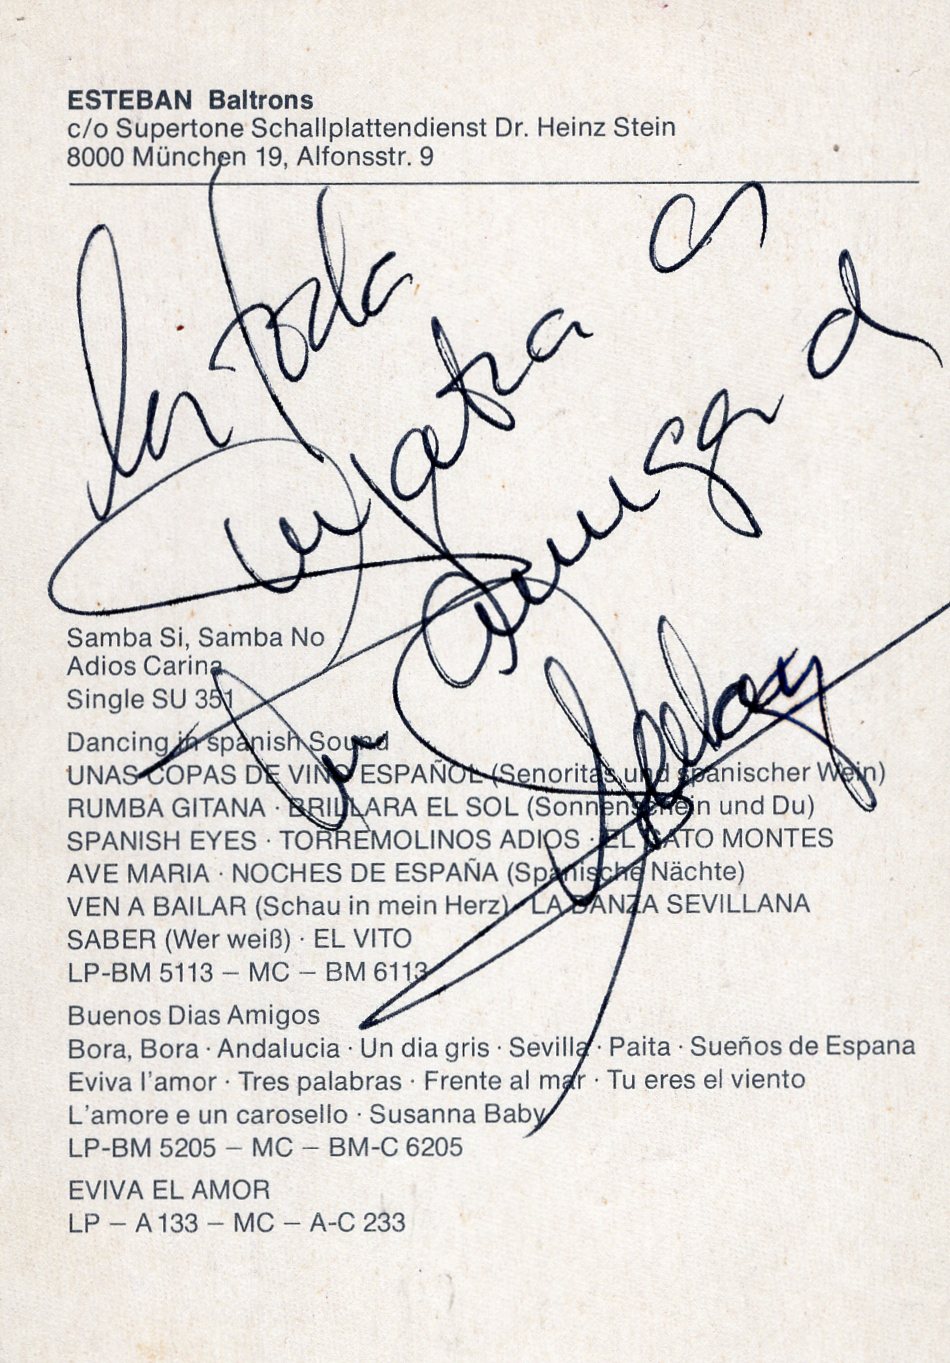 ESTEBAN Baltrons
c/o Supertone Schallplattendienst Dr. Heinz Stein
8000 München 19, Alfonsstr. 9
con toda
Esteban
Samba Si, Samba No
Adios Carina
Single SU 351
Dancing in spanish Sound
UNAS COPAS DE VINO ESPAÑOL (Senoritas und spanischer Wein)
RUMBA GITANA · BRILLARA EL SOL (Sonnenschein und Du)
SPANISH EYES · TORREMOLINOS ADIOS · EL GATO MONTES
AVE MARIA · NOCHES DE ESPAÑA (Spanische Nächte)
VEN A BAILAR (Schau in mein Herz) · LA DANZA SEVILLANA
SABER (Wer weiß) · EL VITO
LP-BM 5113 – MC – BM 6113
Buenos Dias Amigos
Bora, Bora · Andalucia · Un dia gris · Sevilla · Paita · Sueños de Espana
Eviva l'amor · Tres palabras · Frente al mar · Tu eres el viento
L'amore e un carosello · Susanna Baby
LP-BM 5205 – MC – BM-C 6205
EVIVA EL AMOR
LP – A 133 – MC – A-C 233